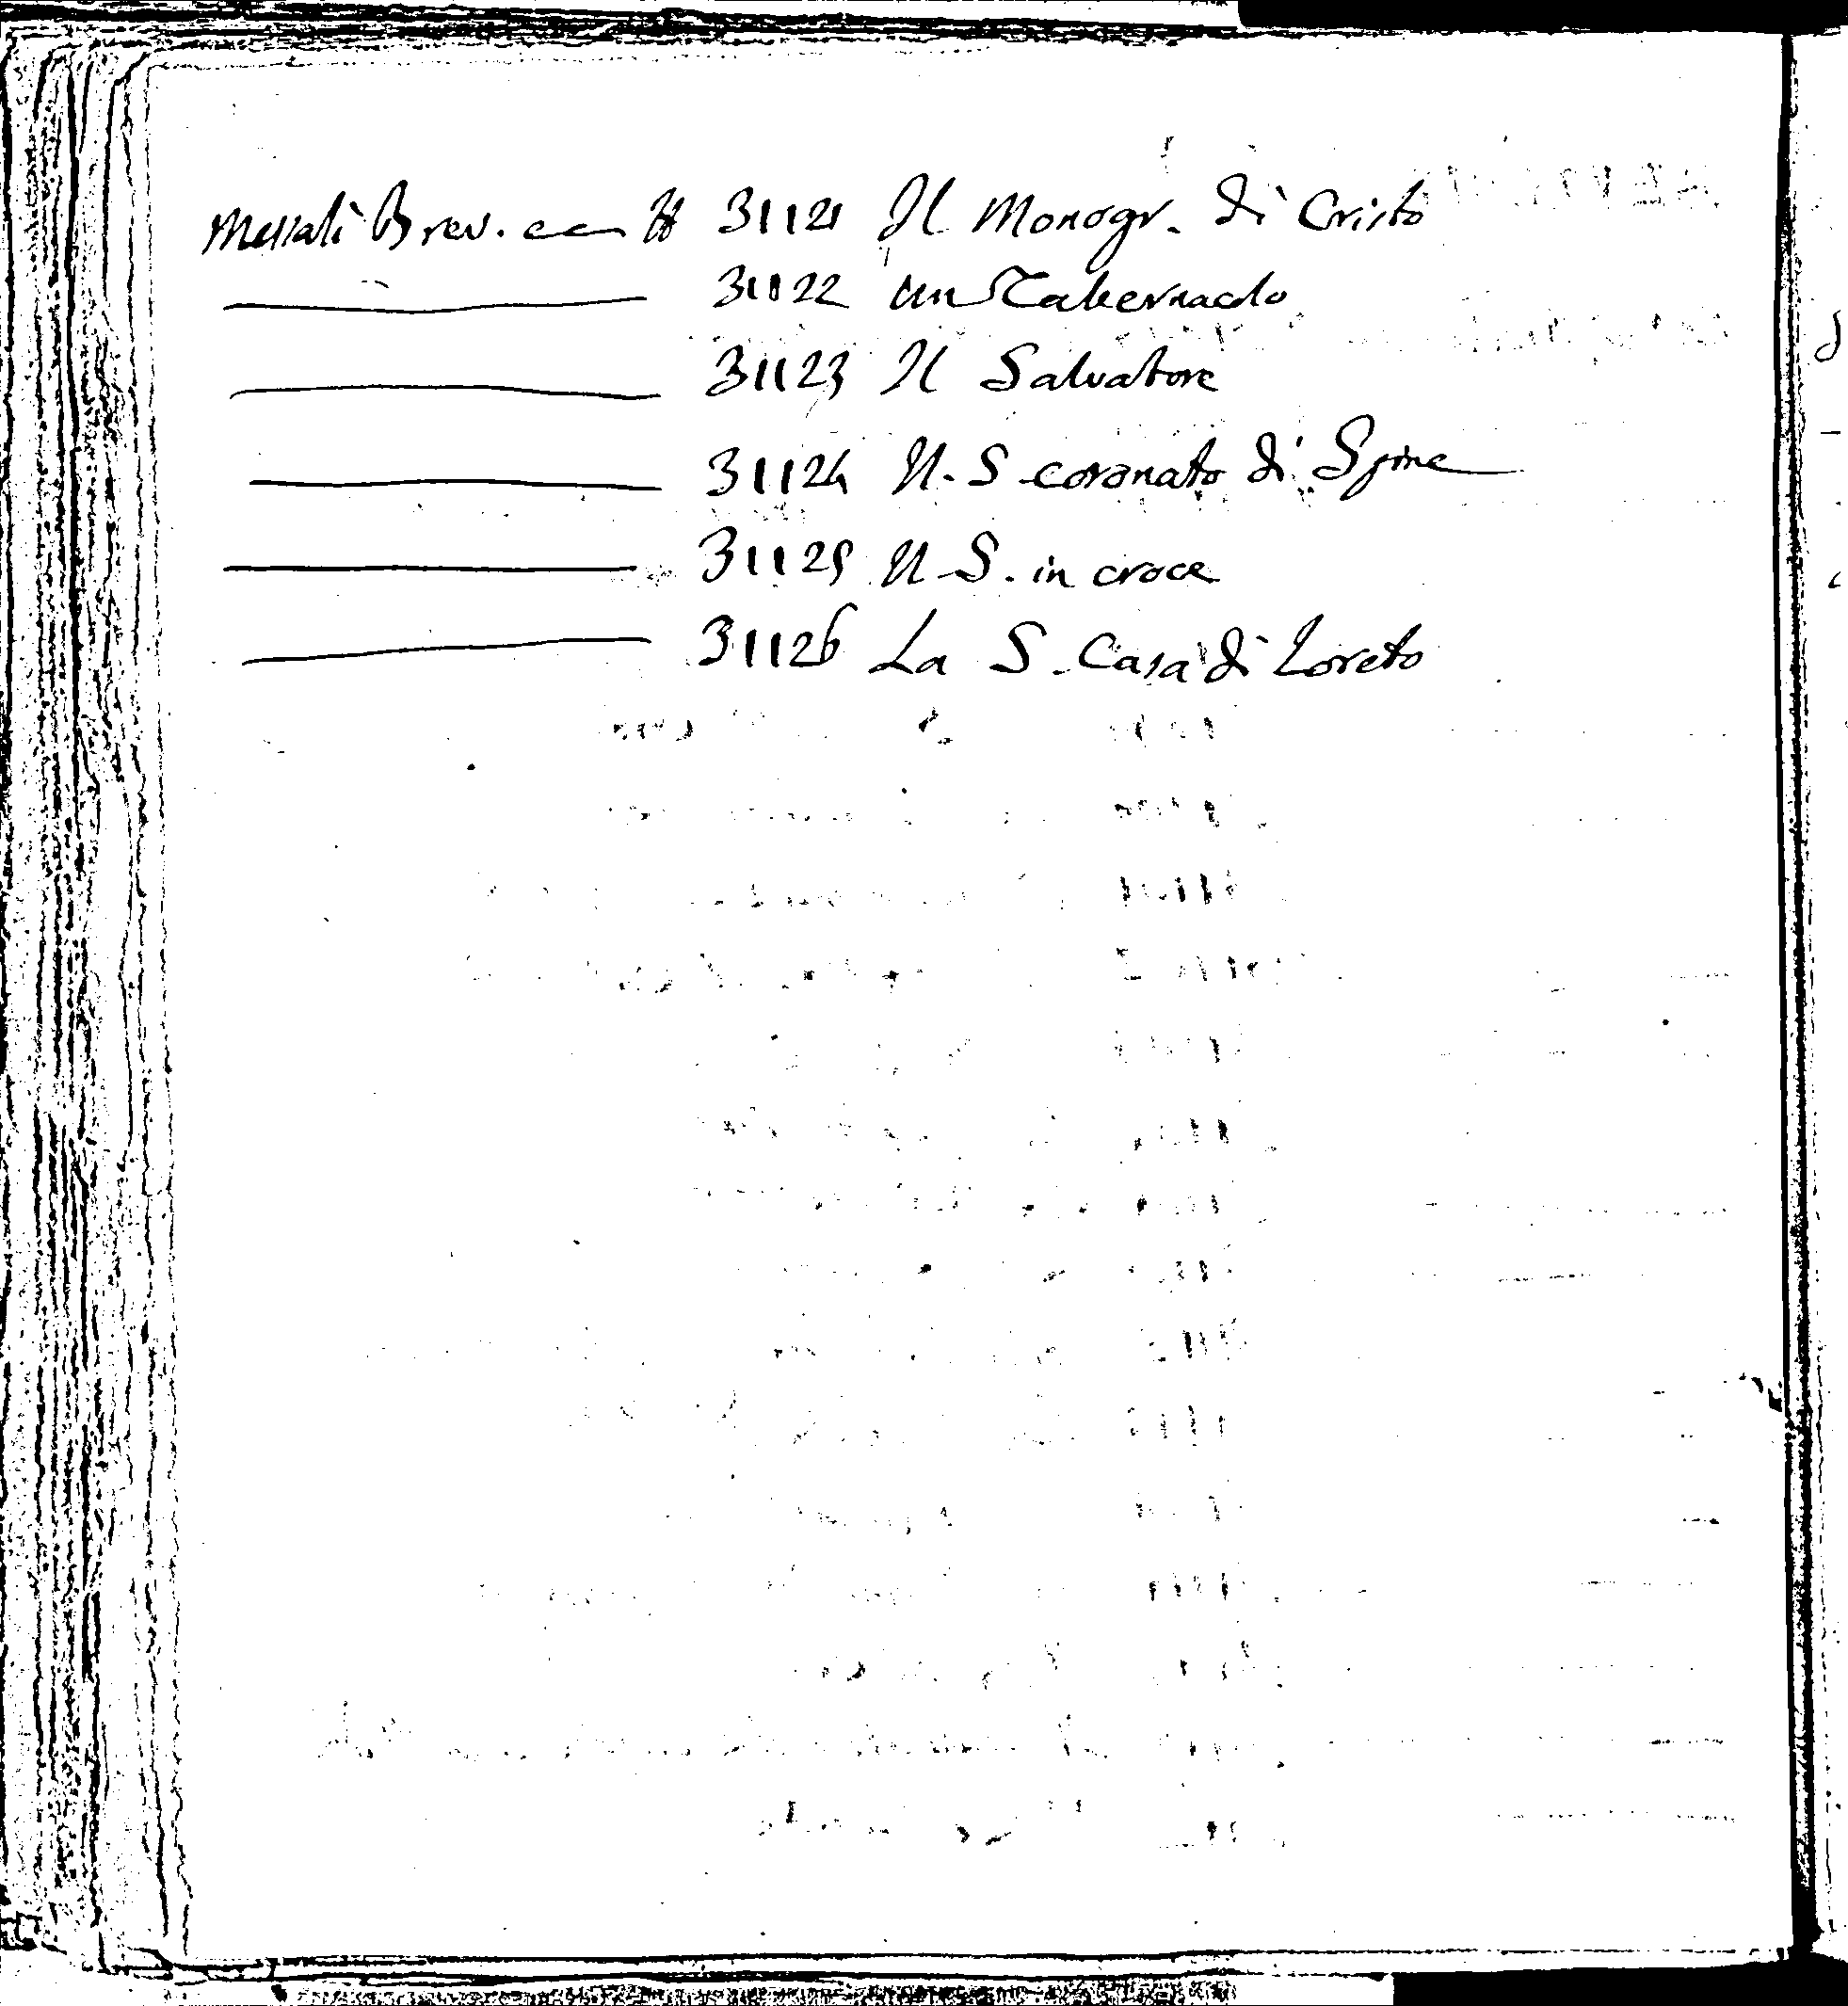 Messali Brev. ec # 31121 Il Monogr. di Cristo
31122 un Tabernacolo
31123 Il Salvatore
31124 N. S. coronato di Spine
31125 N. S. in croce
31126 La S. Casa di Loreto